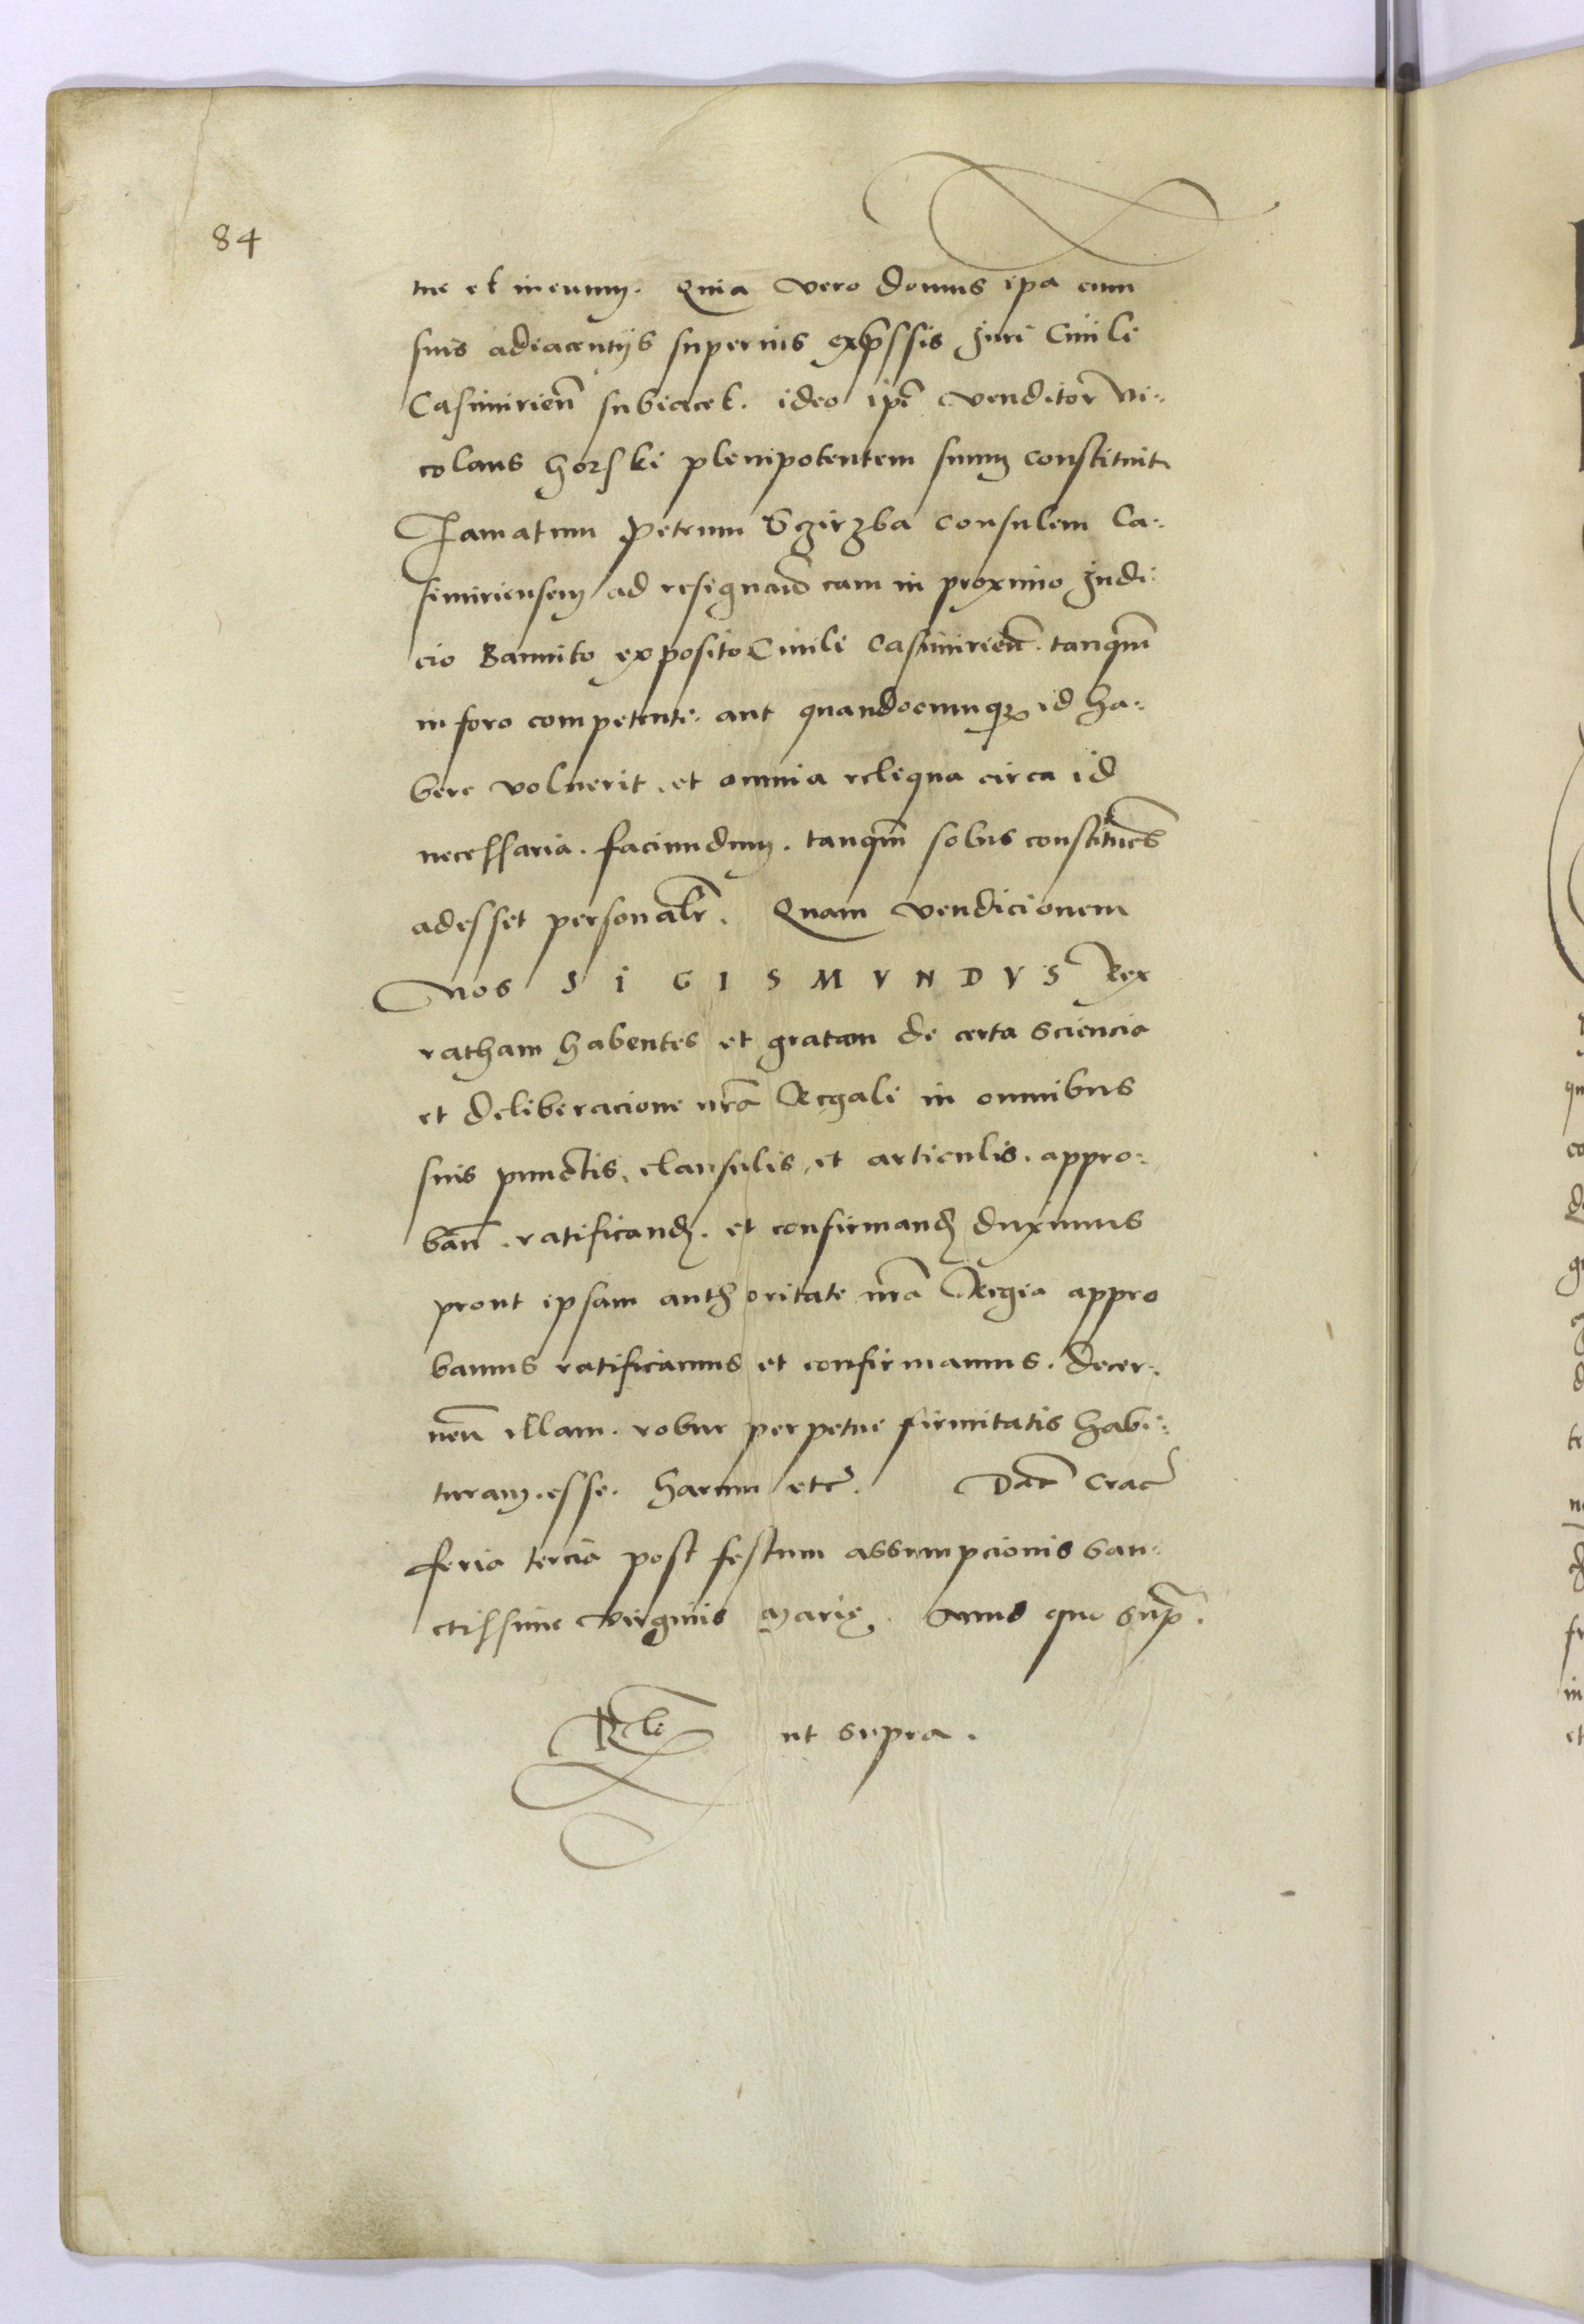 84
tue et in euum. Quia vero domus ip̃a cum
suis adiacentijs superius exp̃ssis Juri Ciuili
Casimirien̄ subiacet. ideo ip̃e venditor Ni:
colaus Gorski plenipotentem suum constituit
Famatum Petrum Sczirzba consulem Ca:
simiriensem ad resignand̄ eam in proximo Judi:
cio Bannito exposito Ciuili Casimirien̄. tanq̃m
in foro competente. aut quandocunq; id ha:
bere voluerit. et omnia reliqua circa id
necessaria. faciundum. tanq̃m solus constituen̄s
adesset personalr̃. Quam vendicionem
Nos S I G I S M V N D V S Rex
ratham habentes et gratam de certa sciencia
et deliberacione nr̃a Regali in omnibus
suis punctis, clausulis, et articulis. appro:
ban̄. ratificand̄. et confirmand̄ duximus
prout ipsam authoritate nr̃a Regia appro
bamus ratificamus et confirmamus. decer:
nen̄ illam. robur perpetue firmitatis habi:
turam. esse. Harum etc̃. Dat̃ Crac̃
feria tercia post festum assumpcionis san:
ctissime virginis Marię. Anno quo sup̃.
Rl̃i ut supra.